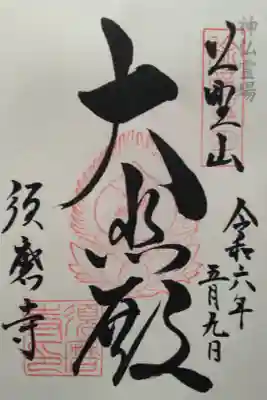 神仏霊場
上野山
令和六年
五月九日
大悲殿
須磨寺